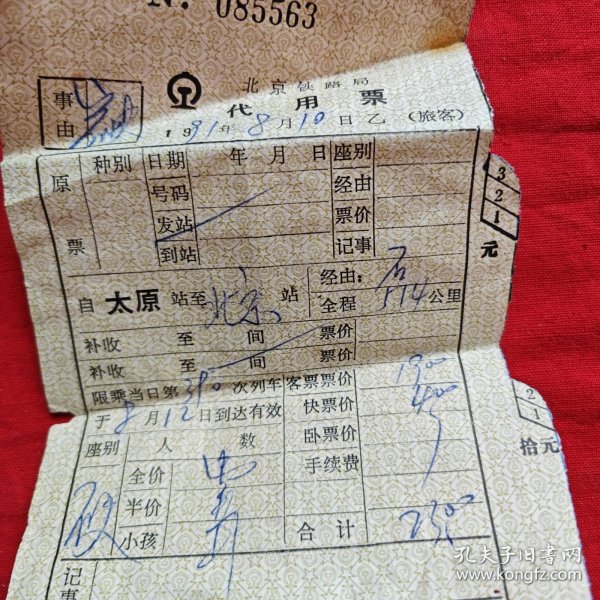 N. 085563
事由
北京铁路局
代用票
1991年8月10日乙（旅客）
原票
种别 日期 年 月 日 座别
号码 经由
发站 票价
到站 记事
3
2
1
元
自 太原 站至 北京 站 经由：石
全程 514 公里
补收 至 间 票价
补收 至 间 票价
限乘当日第390次列车 客票票价 1900
于8月12日到达有效 快票价 400
座别 人数 卧票价
全价 手续费
硬 半价
小孩 合计 2300
2
1
拾元
记事
孔夫子旧书网
www.kongfz.com